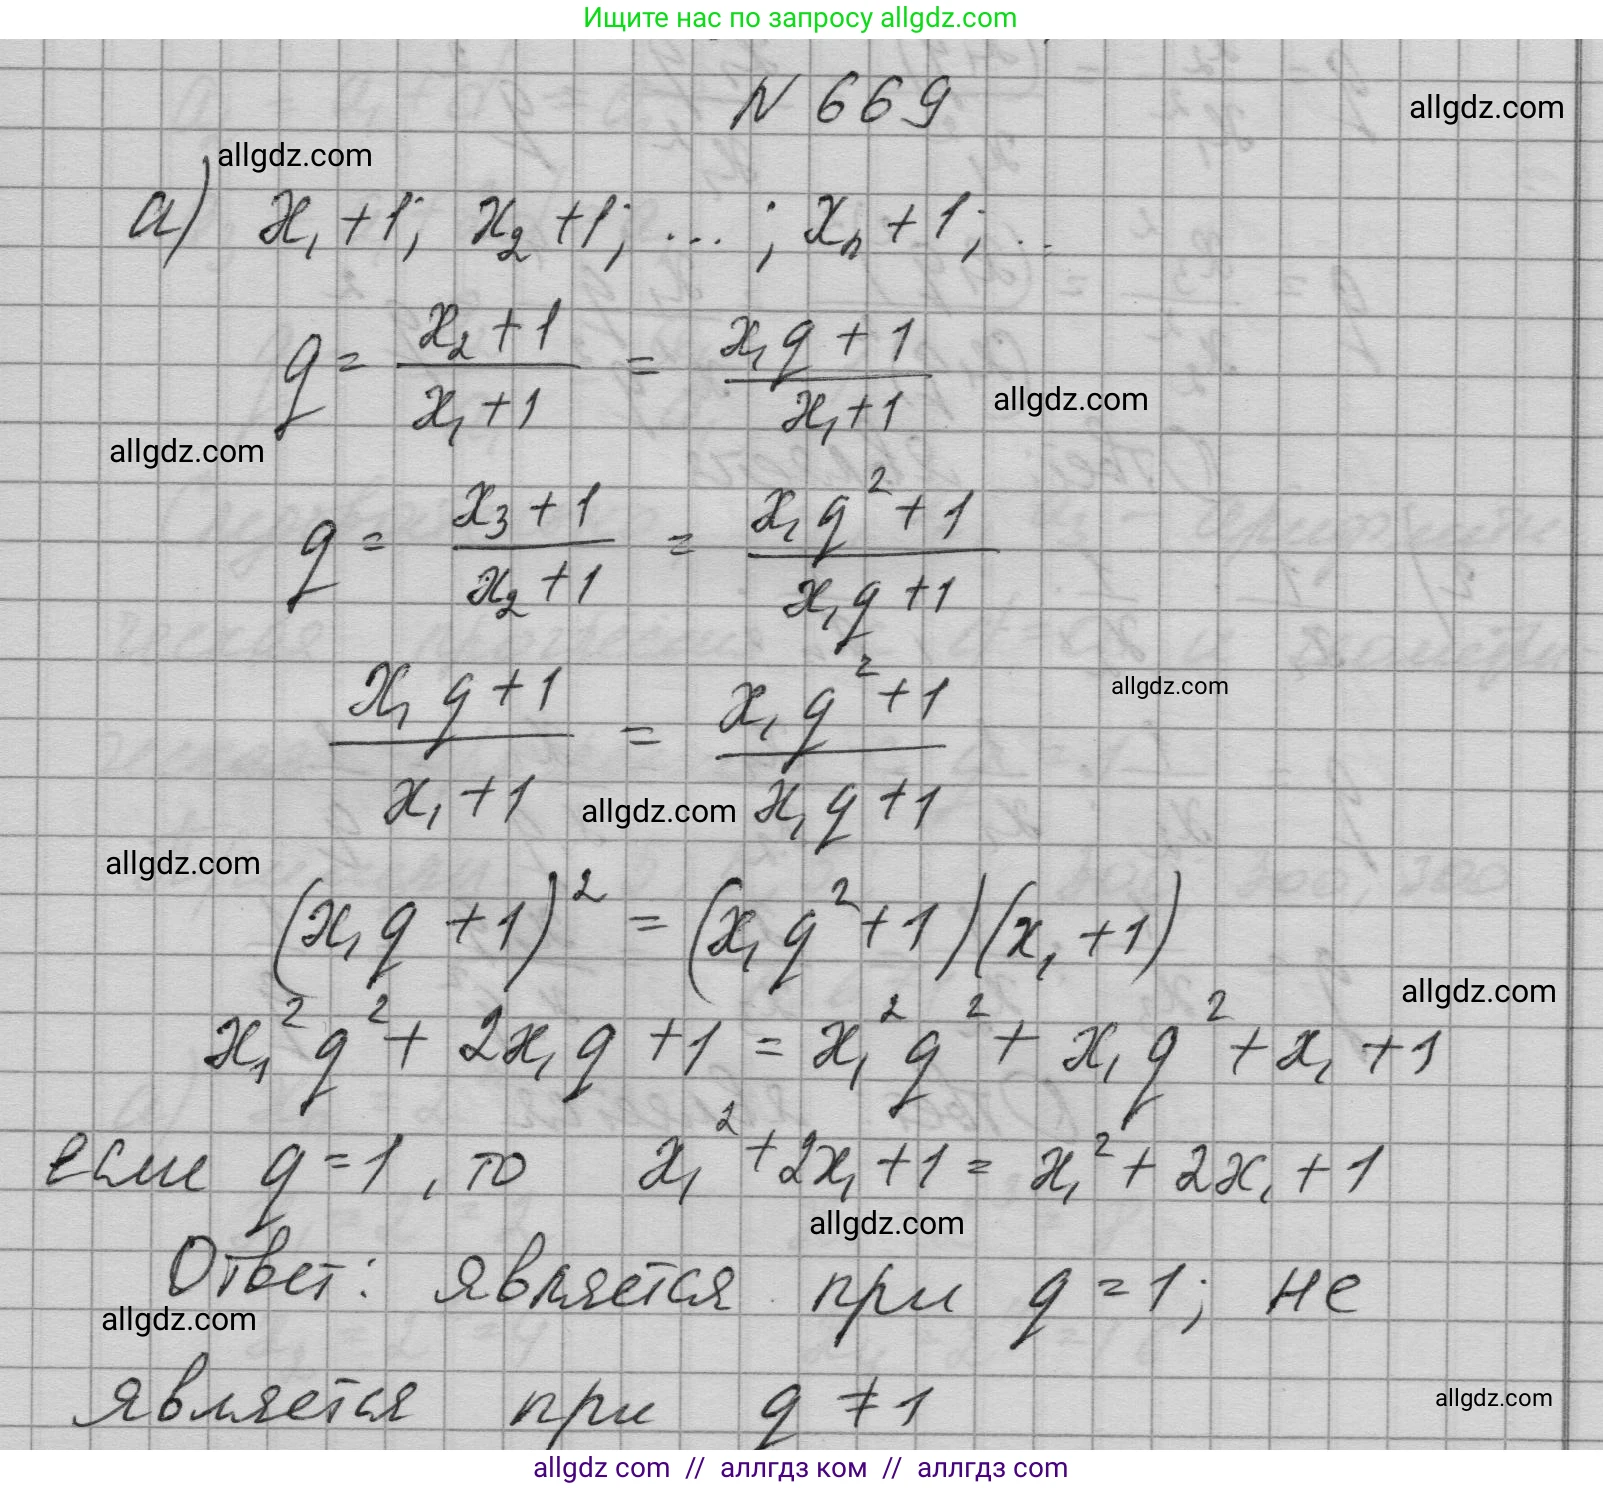 Ищите нас по запросу allgdz.com
N 669
allgdz.com
allgdz.com
а) x₁ + 1; x₂ + 1; ... ; xₙ + 1; ...
q = (x₂ + 1)/(x₁ + 1) = (x₁q + 1)/(x₁ + 1)
allgdz.com
allgdz.com
q = (x₃ + 1)/(x₂ + 1) = (x₁q² + 1)/(x₁q + 1)
allgdz.com
(x₁q + 1)/(x₁ + 1) = (x₁q² + 1)/(x₁q + 1)
allgdz.com
allgdz.com
(x₁q + 1)² = (x₁q² + 1)(x₁ + 1)
allgdz.com
x₁²q² + 2x₁q + 1 = x₁²q² + x₁q² + x₁ + 1
если q = 1, то x₁² + 2x₁ + 1 = x₁² + 2x₁ + 1
allgdz.com
Ответ: является при q = 1; не
allgdz.com
является при q ≠ 1
allgdz.com
allgdz com // аллгдз ком // аллгдз com